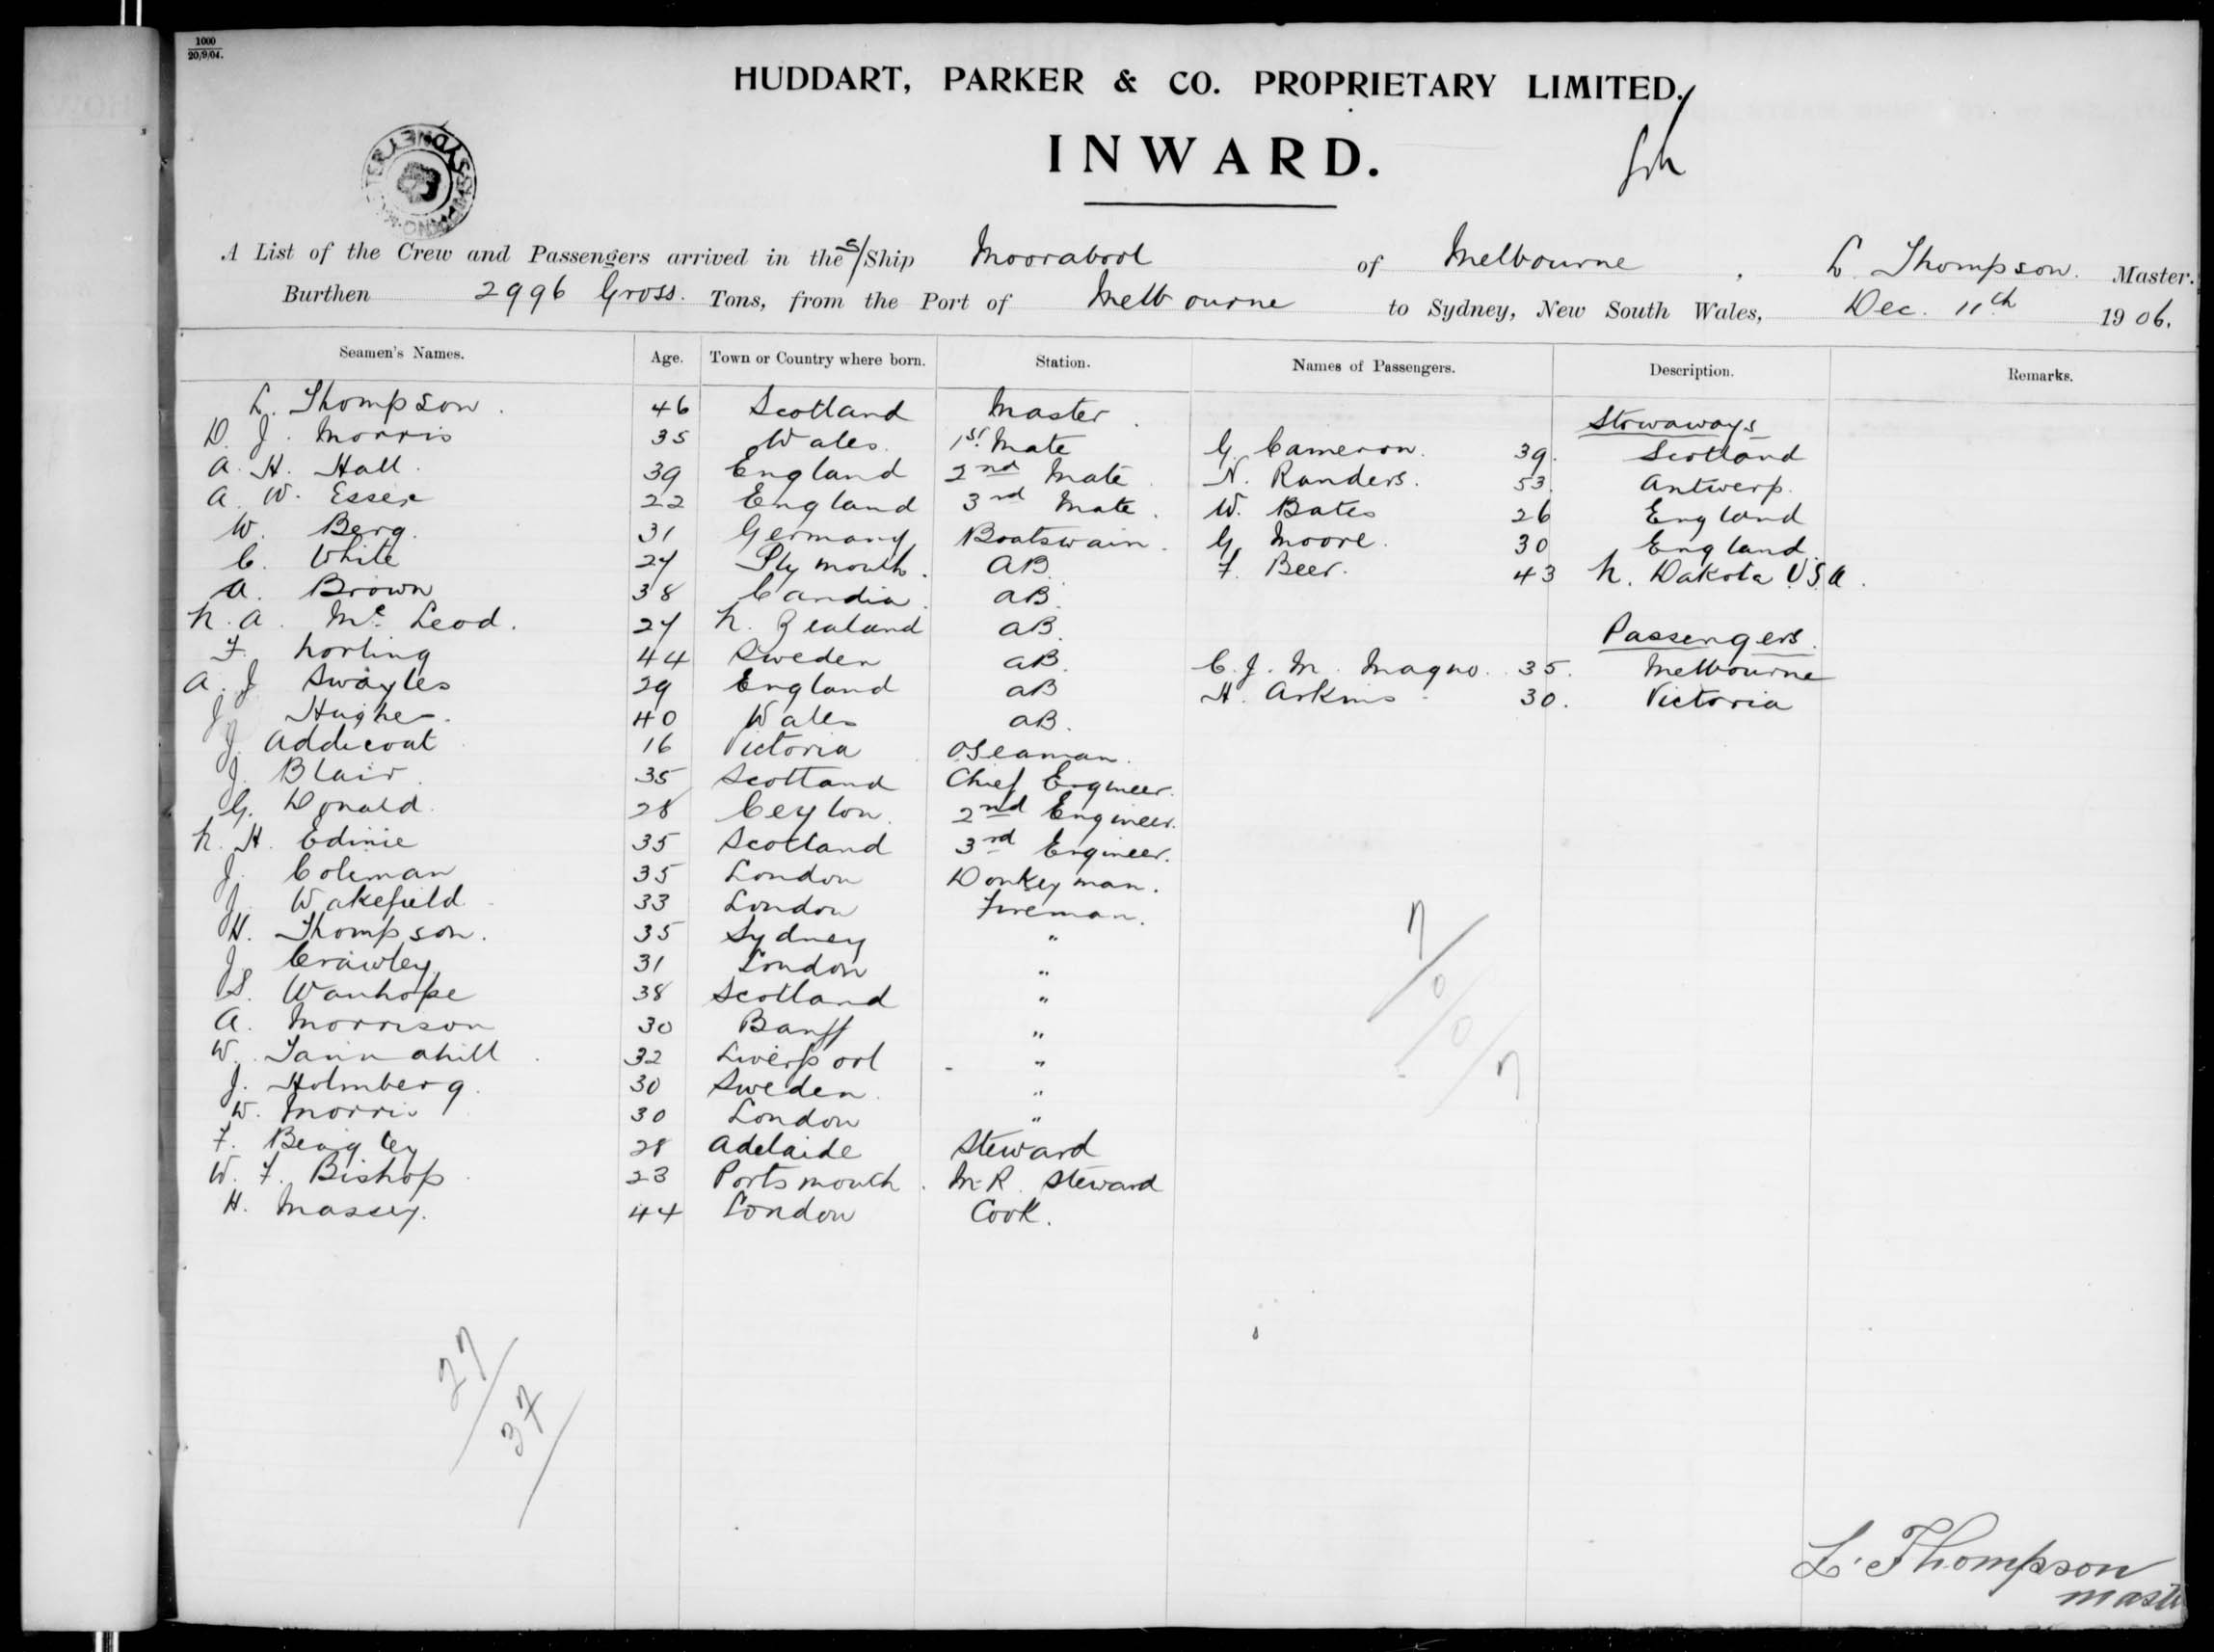 1000
20/9/04.
HUDDART, PARKER & CO. PROPRIETARY LIMITED.
INWARD.
A List of the Crew and Passengers arrived in the S/Ship Moorabool of Melbourne, L. Thompson. Master.
Burthen 2996 Gross. Tons, from the Port of Melbourne to Sydney, New South Wales, Dec. 11th 1906.
Seamen's Names. Age. Town or Country where born. Station. Names of Passengers. Description. Remarks.
L. Thompson. 46 Scotland Master.
Stowaways
D. J. Morris 35 Wales. 1st Mate G. Cameron. 39. Scotland
A. H. Hall. 39 England 2nd Mate N. Randers. 53. Antwerp.
A. W. Essex 22 England 3rd Mate. W. Bates 26 England
W. Berg. 31 Germany Boatswain. G. Moore. 30 England.
C. White 24 Plymouth. AB. F. Beer. 43 N. Dakota U.S.A.
A. Brown 38 Candia. AB.
N. A. McLeod. 24 N. Zealand AB.
Passengers.
F. Norling 44 Sweden AB. C. J. M. Magno. 35. Melbourne
A. J. Swayles 29 England AB H. Arkins 30. Victoria
J. Hughes. 40 Wales AB.
J. Addicoat 16 Victoria OSeaman.
J. Blair. 35 Scotland Chief Engineer.
G. Donald. 28 Ceylon. 2nd Engineer.
N. H. Edinie 35 Scotland 3rd Engineer.
J. Coleman 35 London Donkeyman.
J. Wakefield 33 London Fireman.
H. Thompson. 35 Sydney "
J. Crawley 31 London "
S. Wanhope 38 Scotland "
A. Morrison 30 Banff "
W. Tannahill 32 Liverpool "
J. Holmberg. 30 Sweden. "
W. Morris 30 London "
F. Beagley 28 Adelaide Steward
W. F. Bishop. 23 Portsmouth. M.R. Steward
H. Massey. 44 London Cook.
7/0/0/7
27/37
L. Thompson